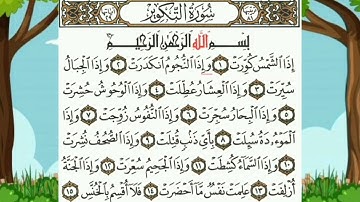 سُورَةُ التَّكْوِيرِ
بِسْمِ اللَّهِ الرَّحْمَٰنِ الرَّحِيمِ
إِذَا الشَّمْسُ كُوِّرَتْ ١ وَإِذَا النُّجُومُ انكَدَرَتْ ٢ وَإِذَا الْجِبَالُ
سُيِّرَتْ ٣ وَإِذَا الْعِشَارُ عُطِّلَتْ ٤ وَإِذَا الْوُحُوشُ حُشِرَتْ
٥ وَإِذَا الْبِحَارُ سُجِّرَتْ ٦ وَإِذَا النُّفُوسُ زُوِّجَتْ ٧ وَإِذَا
الْمَوْءُودَةُ سُئِلَتْ ٨ بِأَيِّ ذَنبٍ قُتِلَتْ ٩ وَإِذَا الصُّحُفُ نُشِرَتْ
١٠ وَإِذَا السَّمَاءُ كُشِطَتْ ١١ وَإِذَا الْجَحِيمُ سُعِّرَتْ ١٢ وَإِذَا الْجَنَّةُ
أُزْلِفَتْ ١٣ عَلِمَتْ نَفْسٌ مَّا أَحْضَرَتْ ١٤ فَلَا أُقْسِمُ بِالْخُنَّسِ ١٥